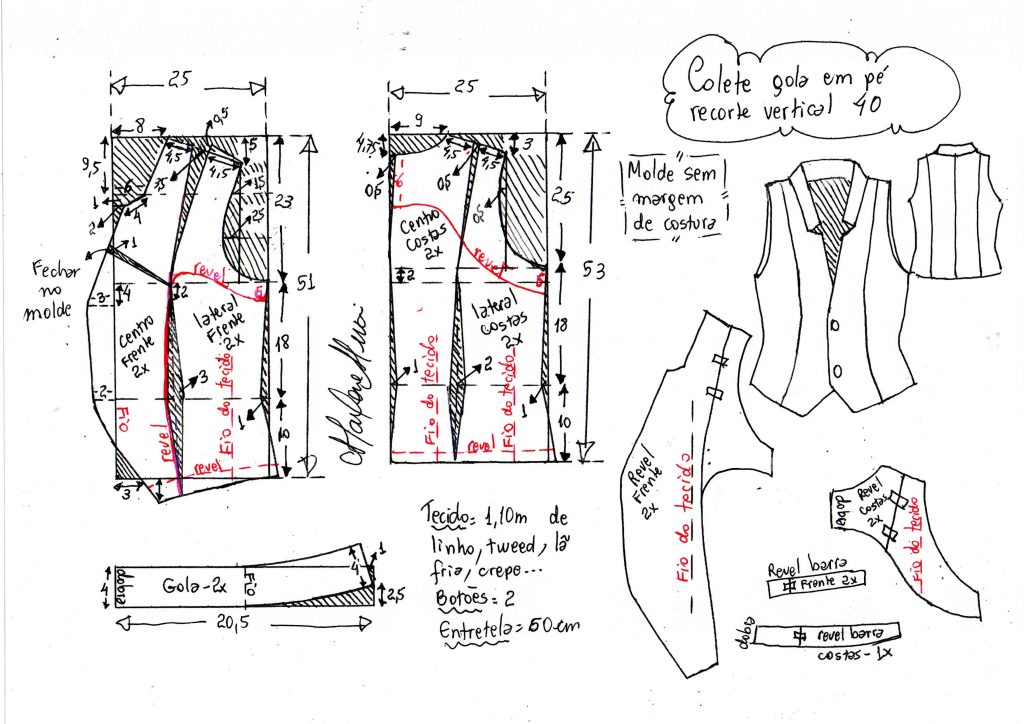 Colete gola em pé
recorte vertical 40
Molde sem
margem
de costura
25
8
0,5
9,5
4,5
5
6
4,5
1,5
1
4
2
2,5
23
1
Fechar
no
molde
revel
51
3
4
2
5
Centro
Frente
2x
lateral
Frente
2x
18
3
2
Fio
revel
Fio do tecido
1
10
revel
3
25
9
4,75
4,5
3
0,5
0,5
25
Centro
Costas
2x
revel
2
5
53
lateral
Costas
2x
18
Fio do tecido
Fio do tecido
1
2
1
10
revel
Marlene Mukai
4
dobra
Gola-2x
Fio
4
1
2,5
20,5
Tecido= 1,10m de
linho, tweed, lã
fria, crepe...
Botões= 2
Entretela= 50cm
Revel
Frente
2x
Fio do tecido
dobra
Revel
Costas
2x
Fio do tecido
Revel barra
Frente 2x
dobra
revel barra
costas-1x